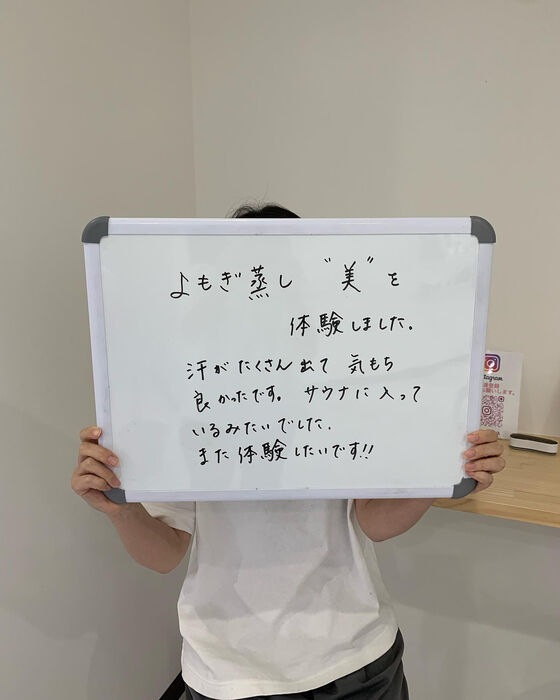 よもぎ蒸し "美"を
体験しました.
汗がたくさん出て 気もち
良かったです。 サウナに入って
いるみたいでした.
また体験したいです!!
Instagram